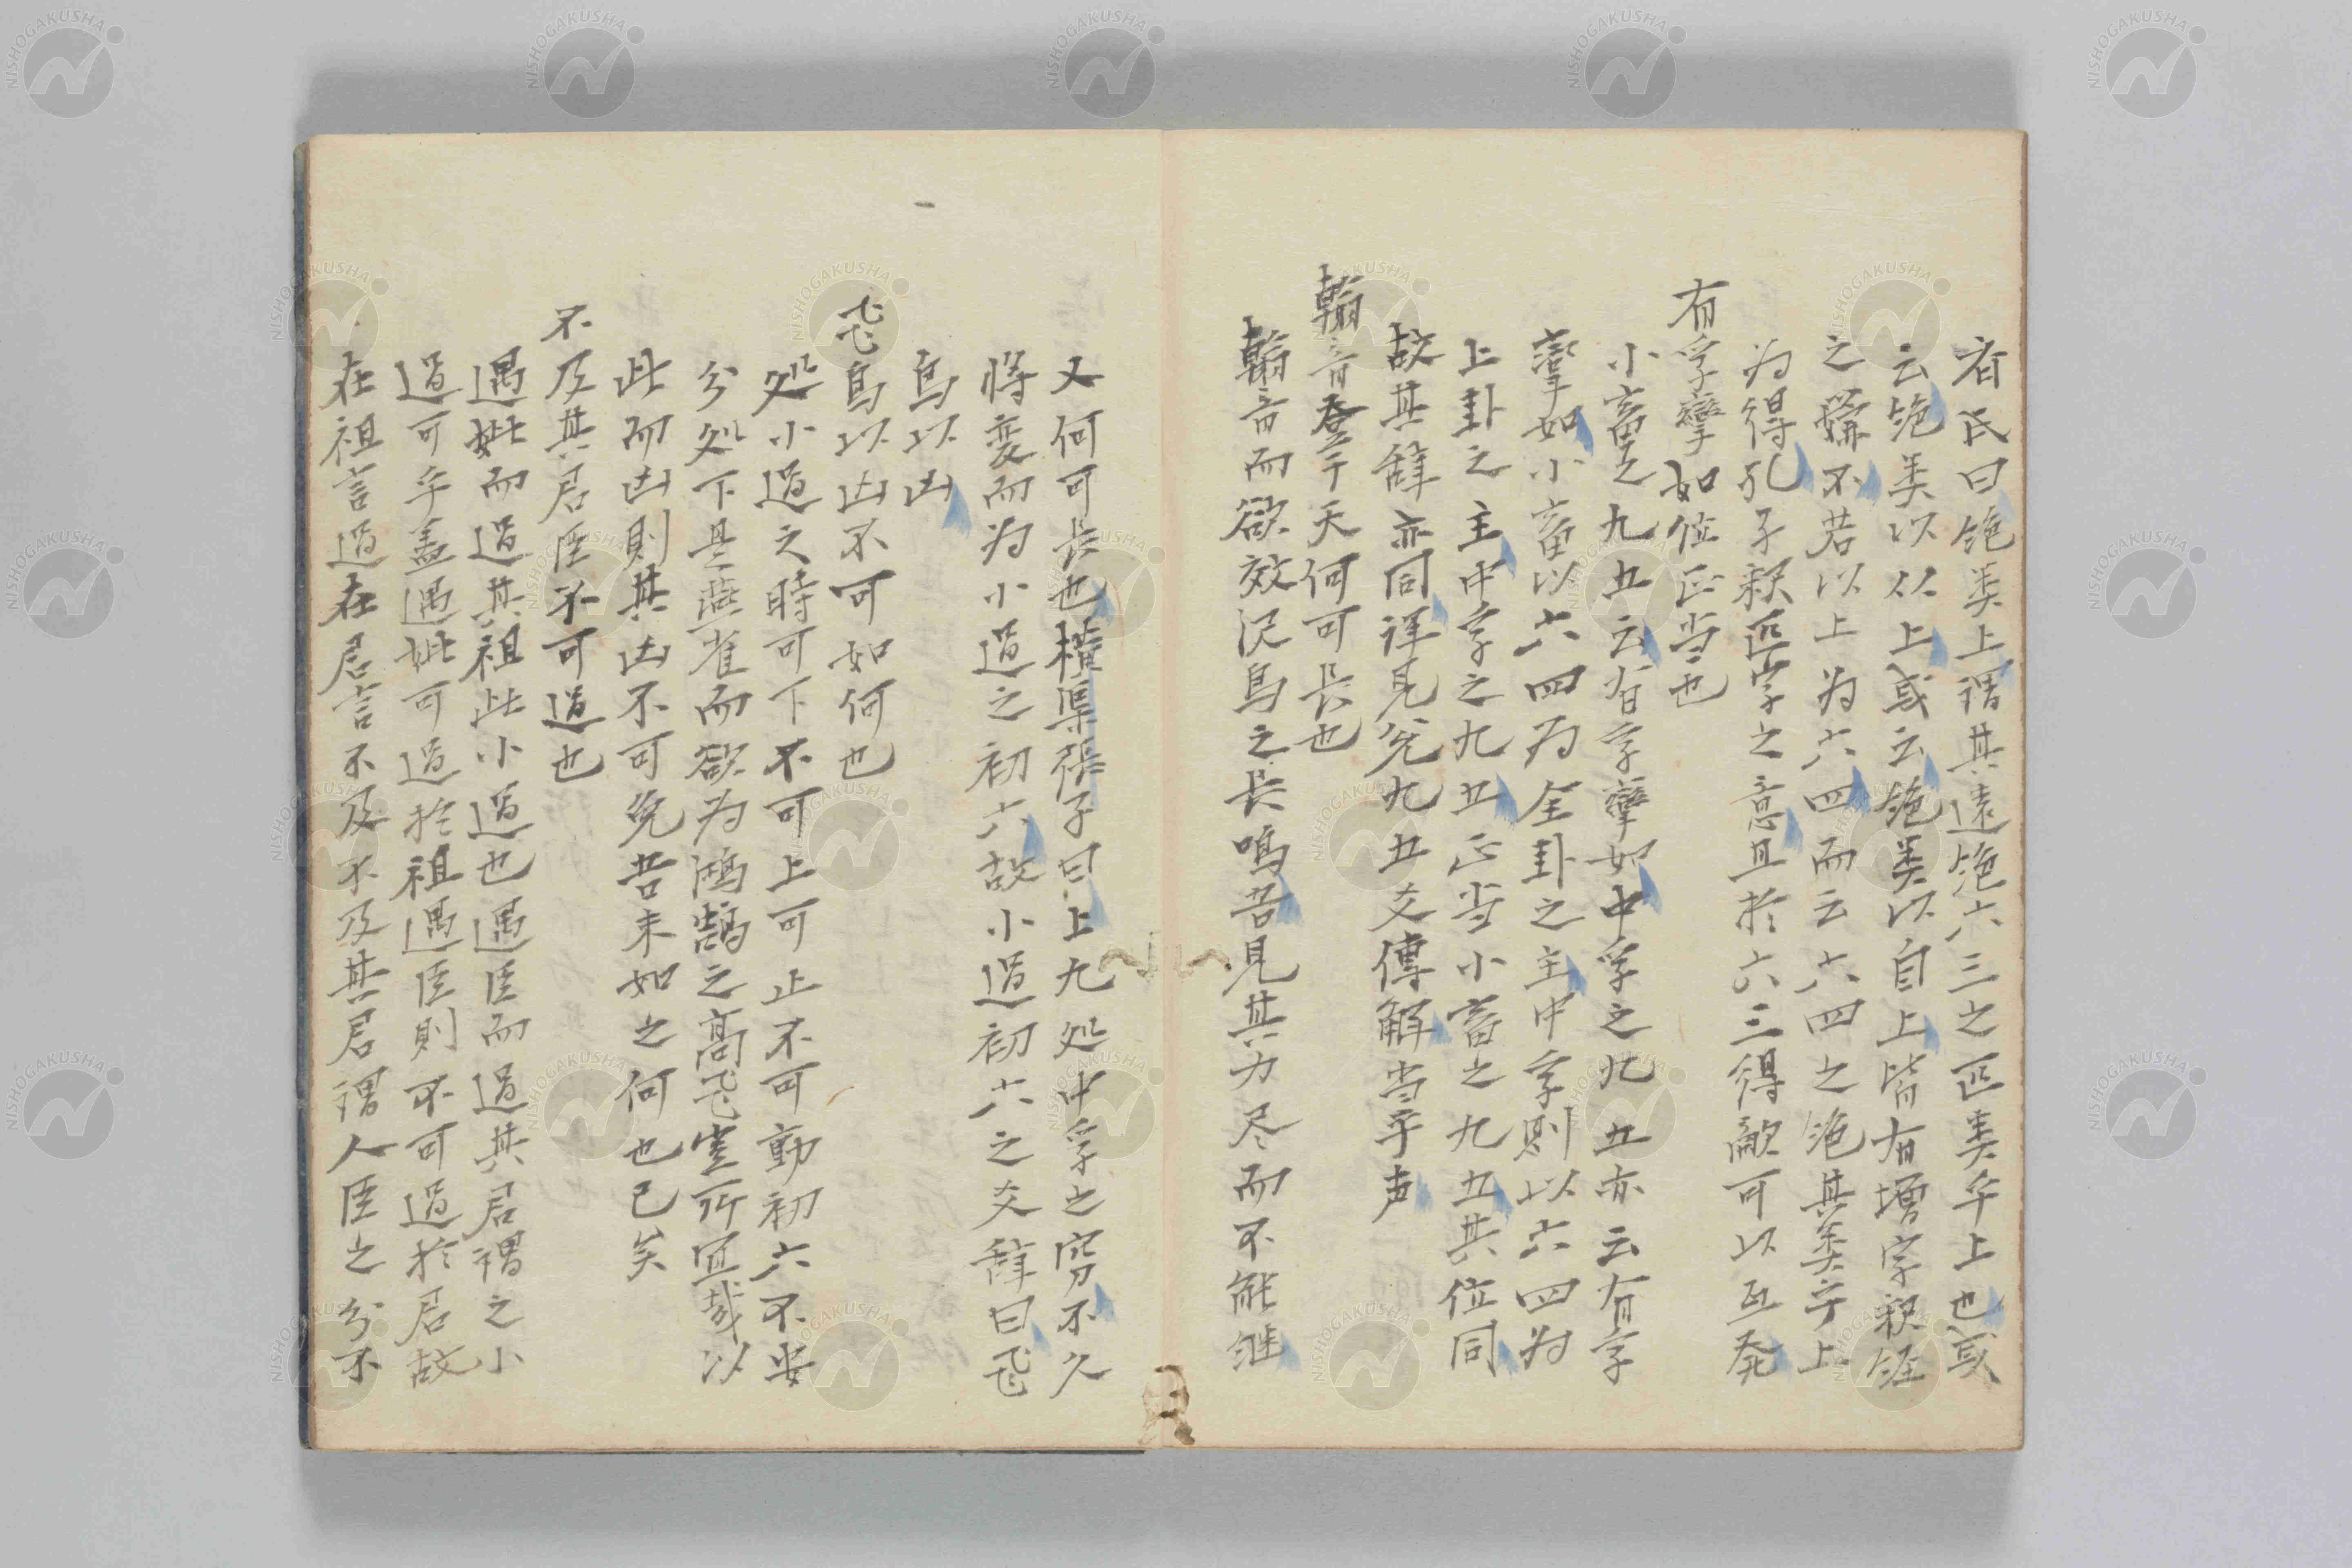 者氏曰絶类上谓其遠絶六三之匹类乎上也或
云絶类以从上或云絶类以自上皆有增字积經
之癖不若以上为六四而云六四之絶其类于上
为得孔子釈匹字之意且於六三得敵可以互発
有孚攣如位正当也
小畜之九五云有孚攣如中孚之九五亦云有孚
攣如小畜以六四为全卦之主中孚則以六四为
上卦之主中孚之九五正当小畜之九五其位同
故其辞亦同詳見兌九五爻傳解当平声
翰音登于天何可長也
翰音而欲效况鳥之長鳴吾見其力尽而不能継
又何可長也横渠張子曰上九处中孚之窮不久
將変而为小過之初六故小過初六之爻辞曰飛
鳥以凶
飛鳥以凶不可如何也
处小過之時可下不可上可止不可動初六不安
分处下是燕雀而欲为鴻鵠之高飛豈所宜哉以
此而凶則其凶不可免吾末如之何也已矣
不及其君臣不可過也
遇妣而過其祖此小過也遇臣而過其君謂之小
過可乎盖遇妣可過於祖遇臣則不可過於君故
在祖言過在君言不及不及其君谓人臣之分不
NISHOGAKUSHA